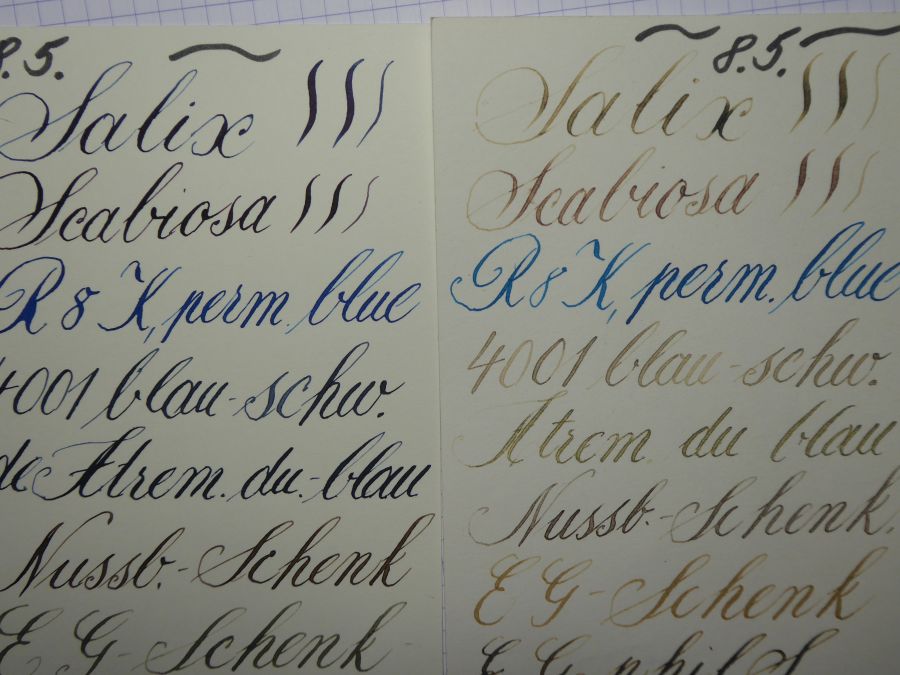 8.5.
Salix
Scabiosa
R & K, perm. blue
4001 blau-schw.
de Atrem. du.-blau
Nussb.-Schenk
E G-Schenk
8.5.
Salix
Scabiosa
R & K, perm. blue
4001 blau-schw.
Atrem du blau
Nussb.-Schenk.
E G-Schenk
E G